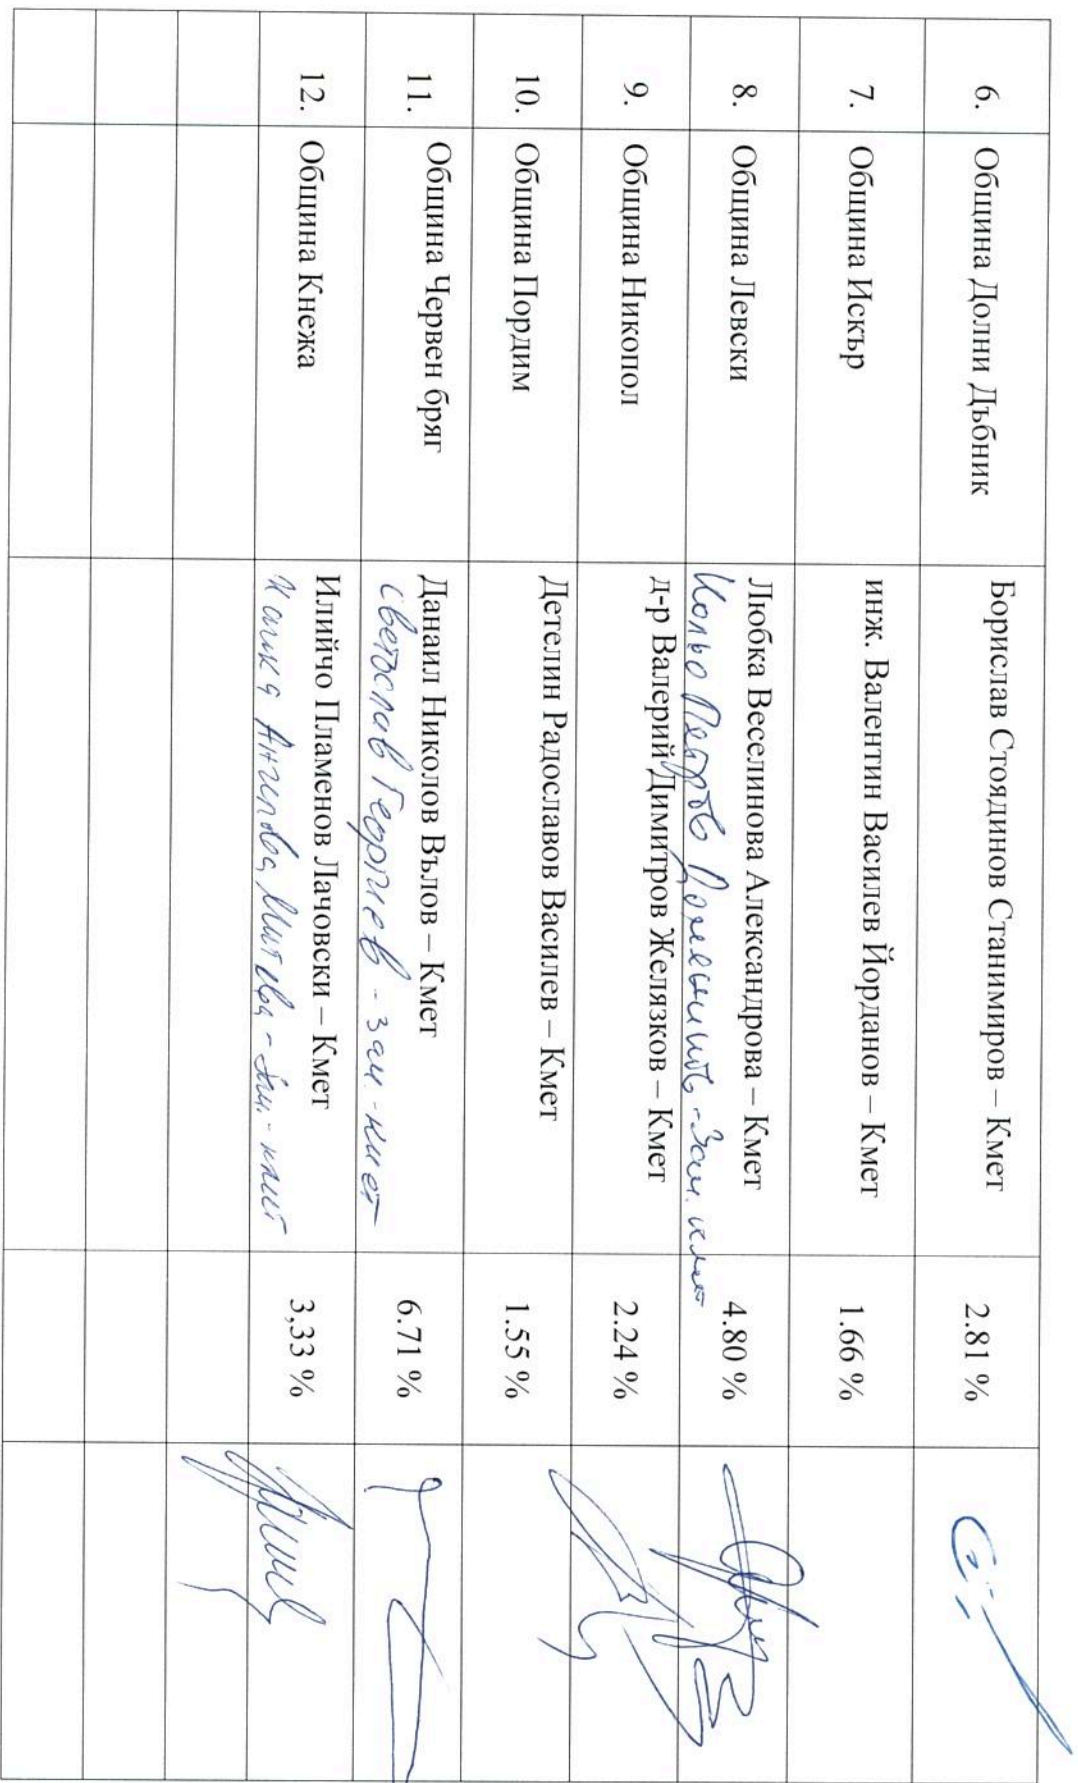 6. Община Долни Дъбник Борислав Стоядинов Станимиров – Кмет 2.81 %
7. Община Искър инж. Валентин Василев Йорданов – Кмет 1.66 %
8. Община Левски Любка Веселинова Александрова – Кмет 4.80 %
Петров - Зам. кмет
9. Община Никопол д-р Валерий Димитров Желязков – Кмет 2.24 %
10. Община Пордим Детелин Радославов Василев – Кмет 1.55 %
11. Община Червен бряг Данаил Николов Вълов – Кмет 6.71 %
Светослав Георгиев - зам.-кмет
12. Община Кнежа Илийчо Пламенов Лачовски – Кмет 3,33 %
Ангелова Митева - Зам.-кмет